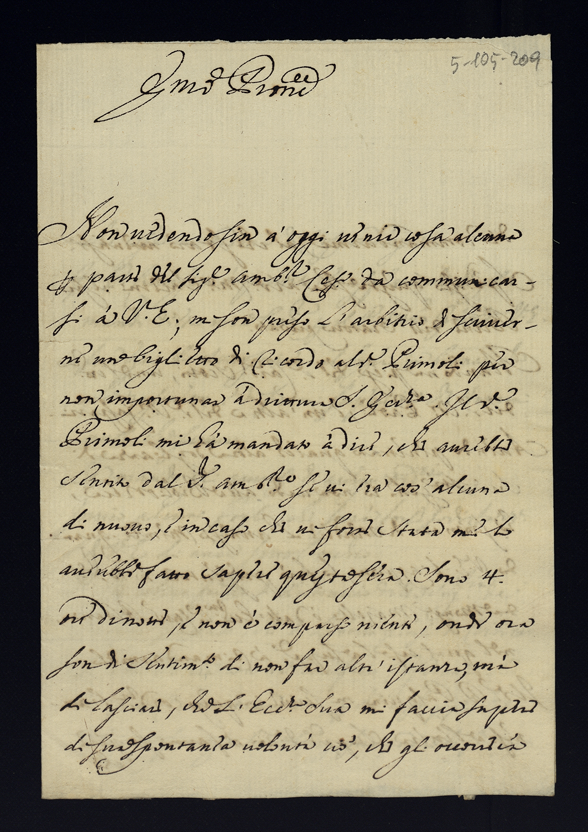 5-105-209
Non vedendo sin' à oggi venir cosa alcuna
parte del Sig.r Amb.r Ces.o da communicar-
si à V. E., mi son preso l'arbitrio di scriver-
ne un biglietto di ricordo al d.o Primoli per
non importunar à drittura S. Ecc.za. Il d.o
Primoli mi hà mandato à dire, che averebbe
sentito dal S.r Amb.re se vi era cos' alcuna
di nuovo, e in caso che vi fosse stata me lo
averebbe fatto sapere questa sera. Sono 4.
ore di notte, e non è comparso niente, onde ora
son di sentim.to di non far altr' istanza, mà
di lasciare, che l'Ecc.za Sua mi faccia sapere
di sua spontanea volontà ciò, che gli occorrerà